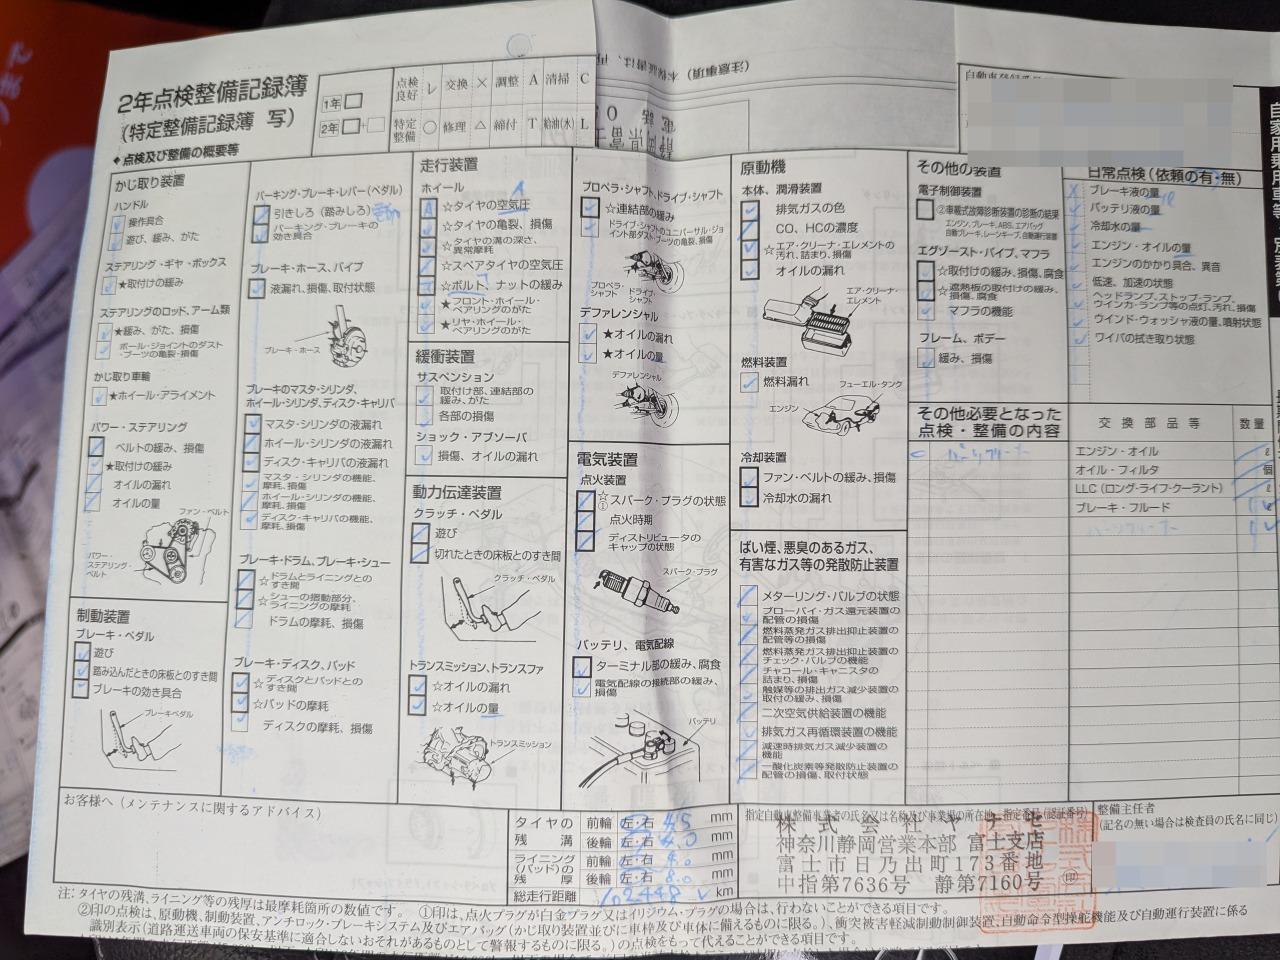 2年点検整備記録簿
(特定整備記録簿 写)
◆点検及び整備の概要等
1年
2年
点検良好 レ 交換 × 調整 A 清掃 C
特定整備 ○ 修理 △ 締付 T 給油(水) L
(注意事項)
かじ取り装置
ハンドル
操作具合
遊び、緩み、がた
ステアリング・ギヤ・ボックス
★取付けの緩み
ステアリングのロッド、アーム類
★緩み、がた、損傷
ボール・ジョイントのダスト・ブーツの亀裂・損傷
かじ取り車輪
★ホイール・アライメント
パワー・ステアリング
ベルトの緩み、損傷
★取付けの緩み
オイルの漏れ
オイルの量
ファン・ベルト
パワー・ステアリング・ベルト
制動装置
ブレーキ・ペダル
遊び
踏み込んだときの床板とのすき間
ブレーキの効き具合
ブレーキペダル
パーキング・ブレーキ・レバー(ペダル)
引きしろ(踏みしろ)
パーキング・ブレーキの効き具合
ブレーキ・ホース、パイプ
液漏れ、損傷、取付状態
ブレーキ・ホース
ブレーキのマスタ・シリンダ、
ホイール・シリンダ、ディスク・キャリパ
マスタ・シリンダの液漏れ
ホイール・シリンダの液漏れ
ディスク・キャリパの液漏れ
マスタ・シリンダの機能、摩耗、損傷
ホイール・シリンダの機能、摩耗、損傷
ディスク・キャリパの機能、摩耗、損傷
ブレーキ・ドラム、ブレーキ・シュー
☆ドラムとライニングとのすき間
☆シューの摺動部分、ライニングの摩耗
ドラムの摩耗、損傷
ブレーキ・ディスク、パッド
☆ディスクとパッドとのすき間
☆パッドの摩耗
ディスクの摩耗、損傷
走行装置
ホイール
A
☆タイヤの空気圧
☆タイヤの亀裂、損傷
☆タイヤの溝の深さ、異常摩耗
☆スペアタイヤの空気圧
☆ボルト、ナットの緩み
★フロント・ホイール・ベアリングのがた
★リヤ・ホイール・ベアリングのがた
緩衝装置
サスペンション
取付け部、連結部の緩み、がた
各部の損傷
ショック・アブソーバ
損傷、オイルの漏れ
動力伝達装置
クラッチ・ペダル
遊び
切れたときの床板とのすき間
クラッチ・ペダル
トランスミッション、トランスファ
☆オイルの漏れ
☆オイルの量
トランスミッション
プロペラ・シャフト、ドライブ・シャフト
☆連結部の緩み
ドライブ・シャフトのユニバーサル・ジョイント部ダスト・ブーツの亀裂、損傷
プロペラ・シャフト
ドライブ・シャフト
デファレンシャル
★オイルの漏れ
★オイルの量
デファレンシャル
電気装置
点火装置
☆①スパーク・プラグの状態
点火時期
ディストリビュータのキャップの状態
スパーク・プラグ
バッテリ、電気配線
ターミナル部の緩み、腐食
電気配線の接続部の緩み、損傷
バッテリ
原動機
本体、潤滑装置
排気ガスの色
CO、HCの濃度
☆エア・クリーナ・エレメントの汚れ、詰まり、損傷
オイルの漏れ
エア・クリーナ・エレメント
燃料装置
燃料漏れ
フューエル・タンク
エンジン
冷却装置
ファン・ベルトの緩み、損傷
冷却水の漏れ
ばい煙、悪臭のあるガス、
有害なガス等の発散防止装置
メターリング・バルブの状態
ブローバイ・ガス還元装置の配管の損傷
燃料蒸発ガス排出抑止装置の配管等の損傷
燃料蒸発ガス排出抑止装置のチェック・バルブの機能
チャコール・キャニスタの詰まり、損傷
触媒等の排出ガス減少装置の取付の緩み、損傷
二次空気供給装置の機能
排気ガス再循環装置の機能
減速時排気ガス減少装置の機能
一酸化炭素等発散防止装置の配管の損傷、取付状態
その他の装置
電子制御装置
②車載式故障診断装置の診断の結果
エンジン、ブレーキ、ABS、エアバッグ
自動ブレーキ、レーンキープ、自動運行装置
エグゾースト・パイプ、マフラ
☆取付けの緩み、損傷、腐食
☆遮熱板の取付けの緩み、損傷、腐食
マフラの機能
フレーム、ボデー
緩み、損傷
日常点検(依頼の有・無)
ブレーキ液の量
バッテリ液の量
冷却水の量
エンジン・オイルの量
エンジンのかかり具合、異音
低速、加速の状態
ヘッドランプ、ストップ・ランプ、ウインカ・ランプ等の点灯、汚れ、損傷
ウインド・ウォッシャ液の量、噴射状態
ワイパの拭き取り状態
その他必要となった
点検・整備の内容
C パーツクリーナー
交換部品等 数量
エンジン・オイル ℓ
オイル・フィルタ 個
LLC(ロング・ライフ・クーラント) ℓ
ブレーキ・フルード 1 ℓ
パーツクリーナー 1
お客様へ(メンテナンスに関するアドバイス)
タイヤの残溝 前輪 左・右 4.5 mm
後輪 左・右 4.0 mm
ライニング(パッド)の残厚 前輪 左・右 4.0 mm
後輪 左・右 8.0 mm
総走行距離 102448 km
指定自動車整備事業者の氏名又は名称及び事業場の所在地・指定番号(認証番号)
株式会社ヤナセ
神奈川静岡営業本部 富士支店
富士市日乃出町173番地
中指第7636号 静第7160号
整備主任者
(記名の無い場合は検査員の氏名に同じ)
注:タイヤの残溝、ライニング等の残厚は最摩耗箇所の数値です。 ①印は、点火プラグが白金プラグ又はイリジウム・プラグの場合は、行わないことができる項目です。
②印の点検は、原動機、制動装置、アンチロック・ブレーキシステム及びエアバッグ(かじ取り装置並びに車枠及び車体に備えるものに限る。)、衝突被害軽減制動制御装置、自動命令型操舵機能及び自動運行装置に係る
識別表示(道路運送車両の保安基準に適合しないおそれがあるものとして警報するものに限る。)の点検をもって代えることができる項目です。